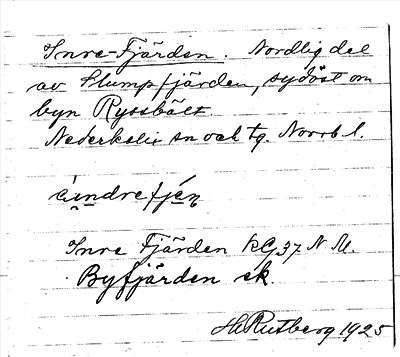 Inre-Fjärden. Nordlig del
av Stumpfjärden, sydöst om
byn Ryssbält.
Nederkalix sn och tg. Norrb. l.
Inre Fjärden kG37 N M.
Byfjärden ek.
H. Rutberg 1925